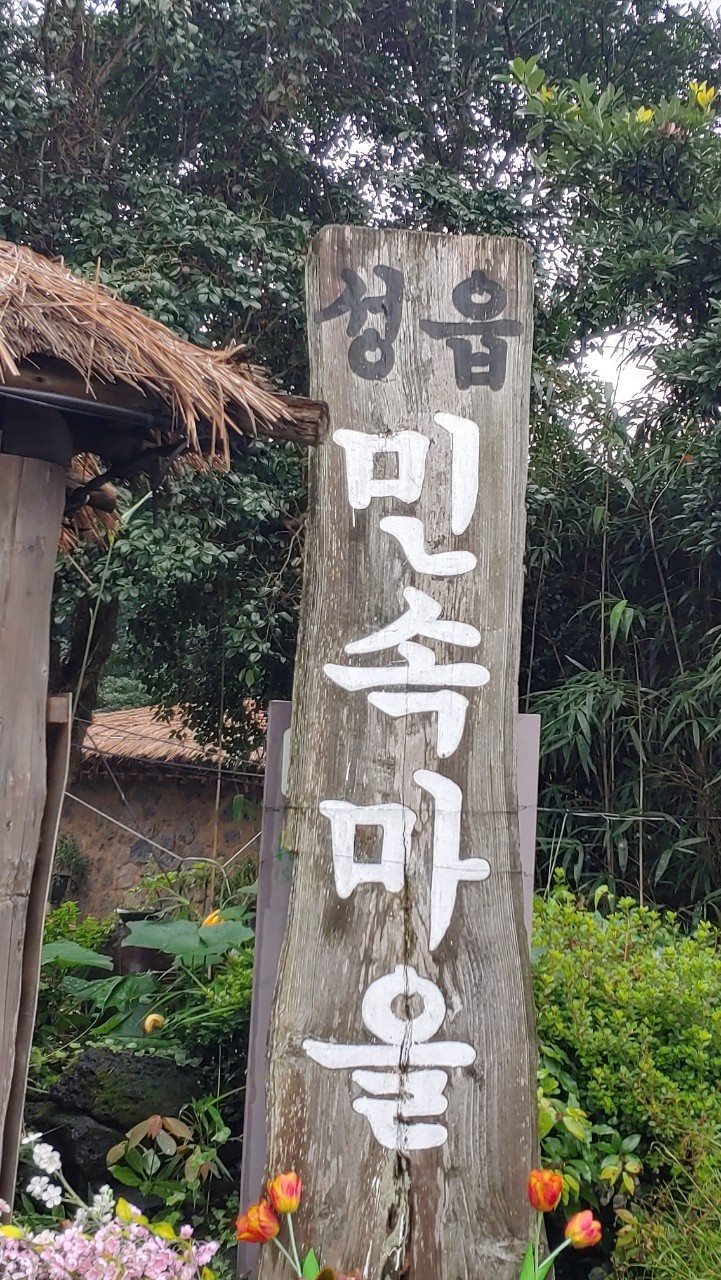 성읍
민속마을